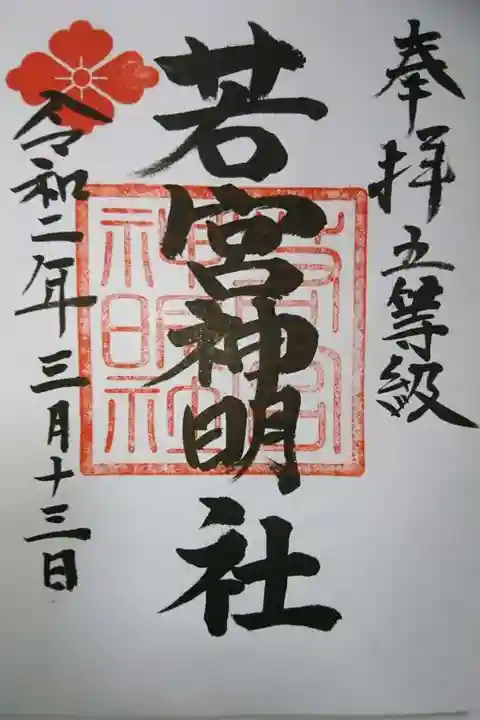 奉拝五等級
若宮神明社
令和二年三月十三日
若宮
神明社